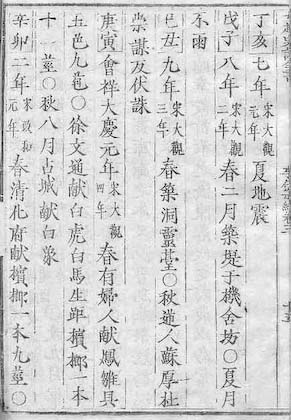 丁亥七年宋大觀元年夏地震
戊子八年宋大觀二年春二月築堤于機舍坊〇夏月
不雨
己丑九年宋大觀三年春築洞靈臺〇秋逆人蘇厚杜
崇謀反伏誅
庚寅會祥大慶元年宋大觀四年春有婦人献鳳雛具
五色九苞〇徐文通献白虎白馬生距檳榔一本
十一莖〇秋八月占城献白象
辛卯二年宋政和元年春清化府献檳榔一本九莖〇